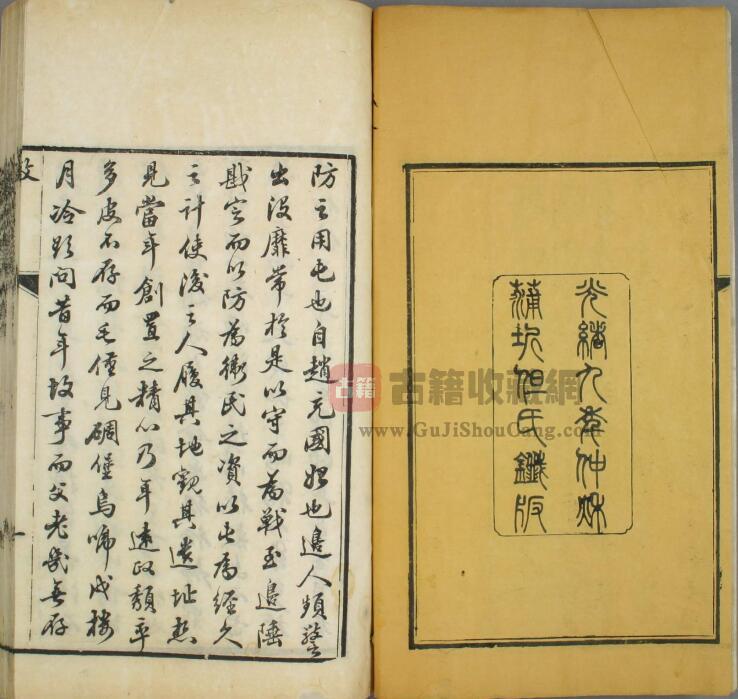 光緒九年仲秋
蒲圻但氏鐫版
防之用屯也自趙充國始也邊人頻警
出沒靡常於是以守而為戰至邊陲
戡定而以防為衛民之資以屯為經久
之計使後之人履其地觀其遺址想
見當年創置之精心乃年遠政頹平
多皮不存而毛僅見碉堡烏啼戍樓
月冷題問昔年故事而父老幾無存
敘
古籍
古籍收藏網
www.GuJiShouCang.com